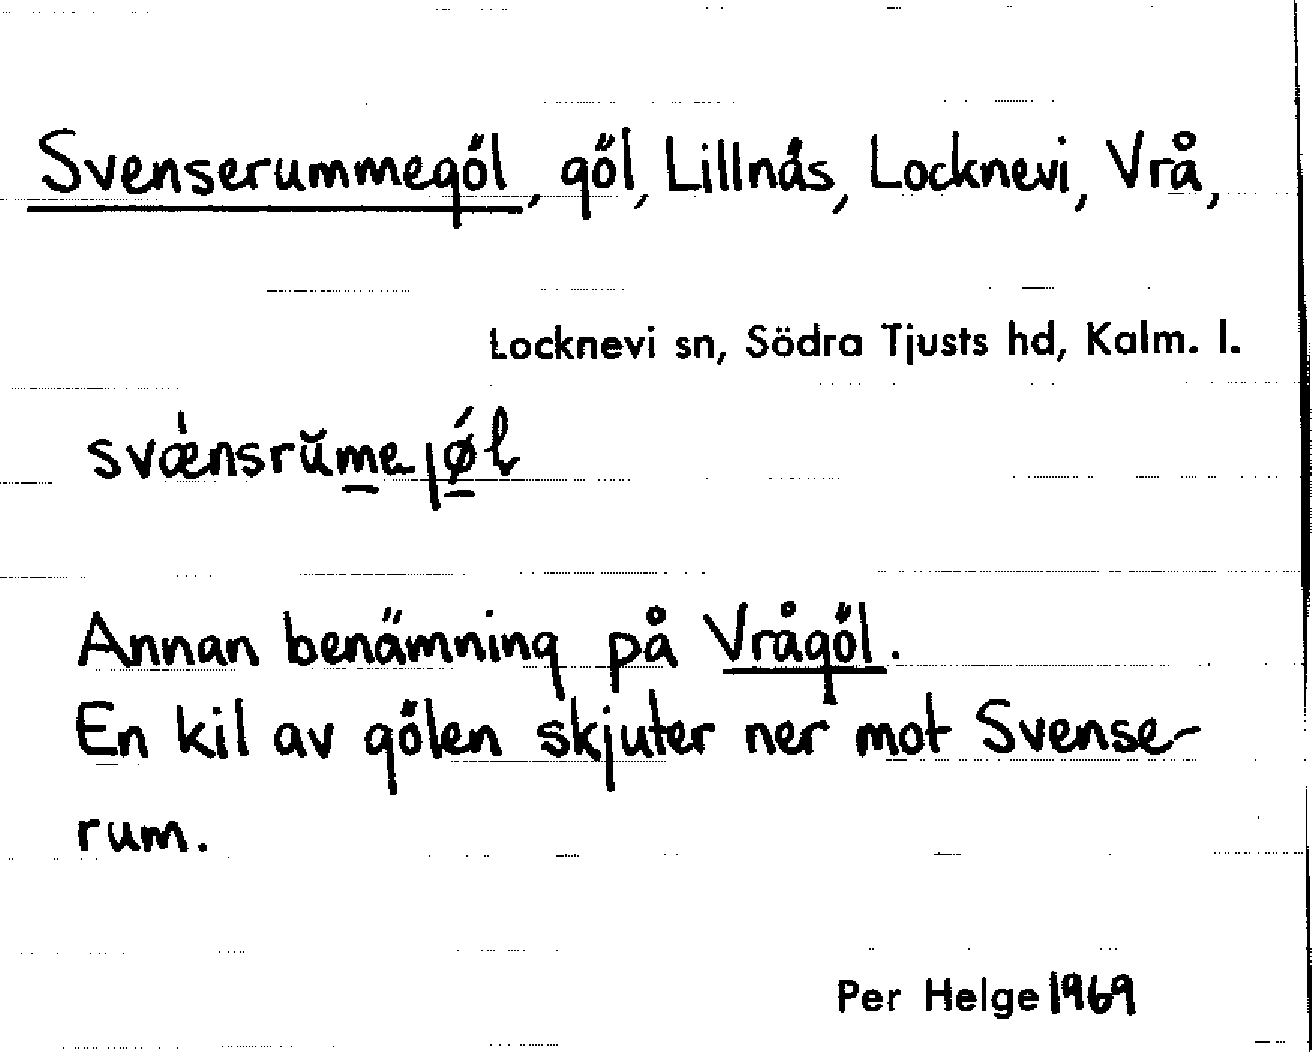 Svenserummegöl, göl, Lillnäs, Locknevi, Vrå,
Locknevi sn, Södra Tjusts hd, Kalm. l.
svæ̀nsrŭm̲e ȷǿ̲ɫ
Annan benämning på Vrågöl.
En kil av gölen skjuter ner mot Svense-
rum.
Per Helge 1969